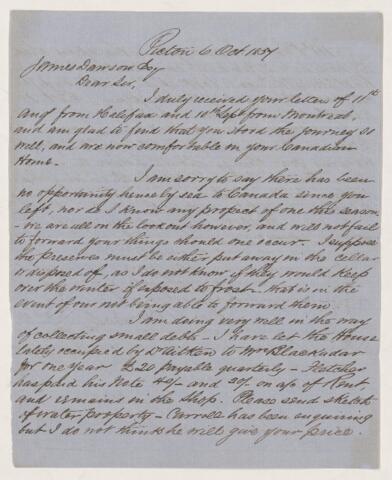 Pictou 6 Oct 1857
James Dawson Esq
Dear Sir,
I duly received your letter of 11th
Augt from Halifax and 10th Sept from Montreal,
and am glad to find that you stood the journey so
well, and are now comfortable in your Canadian
Home.
I am sorry to say there has been
no opportunity hence by sea to Canada since you
left, nor do I know any prospect of one this season
- we are all on the lookout however, and will not fail
to forward your things should one occur. I suppose
the preserves must be either put away in the cellar
or disposed of, as I do not know if they would keep
over the winter if exposed to frost - that is in the
event of our not being able to forward them.
I am doing very well in the way
of collecting small debts - I have let the House
lately occupied by D Aitken to Wm Blackadar
for one year £20 payable quarterly - Fletcher
has paid his Note and 20/- on a/c of Rent
and remains in the Shop. Please send sketch
of water property - Carroll has been enquiring
but I do not think he will give your price.